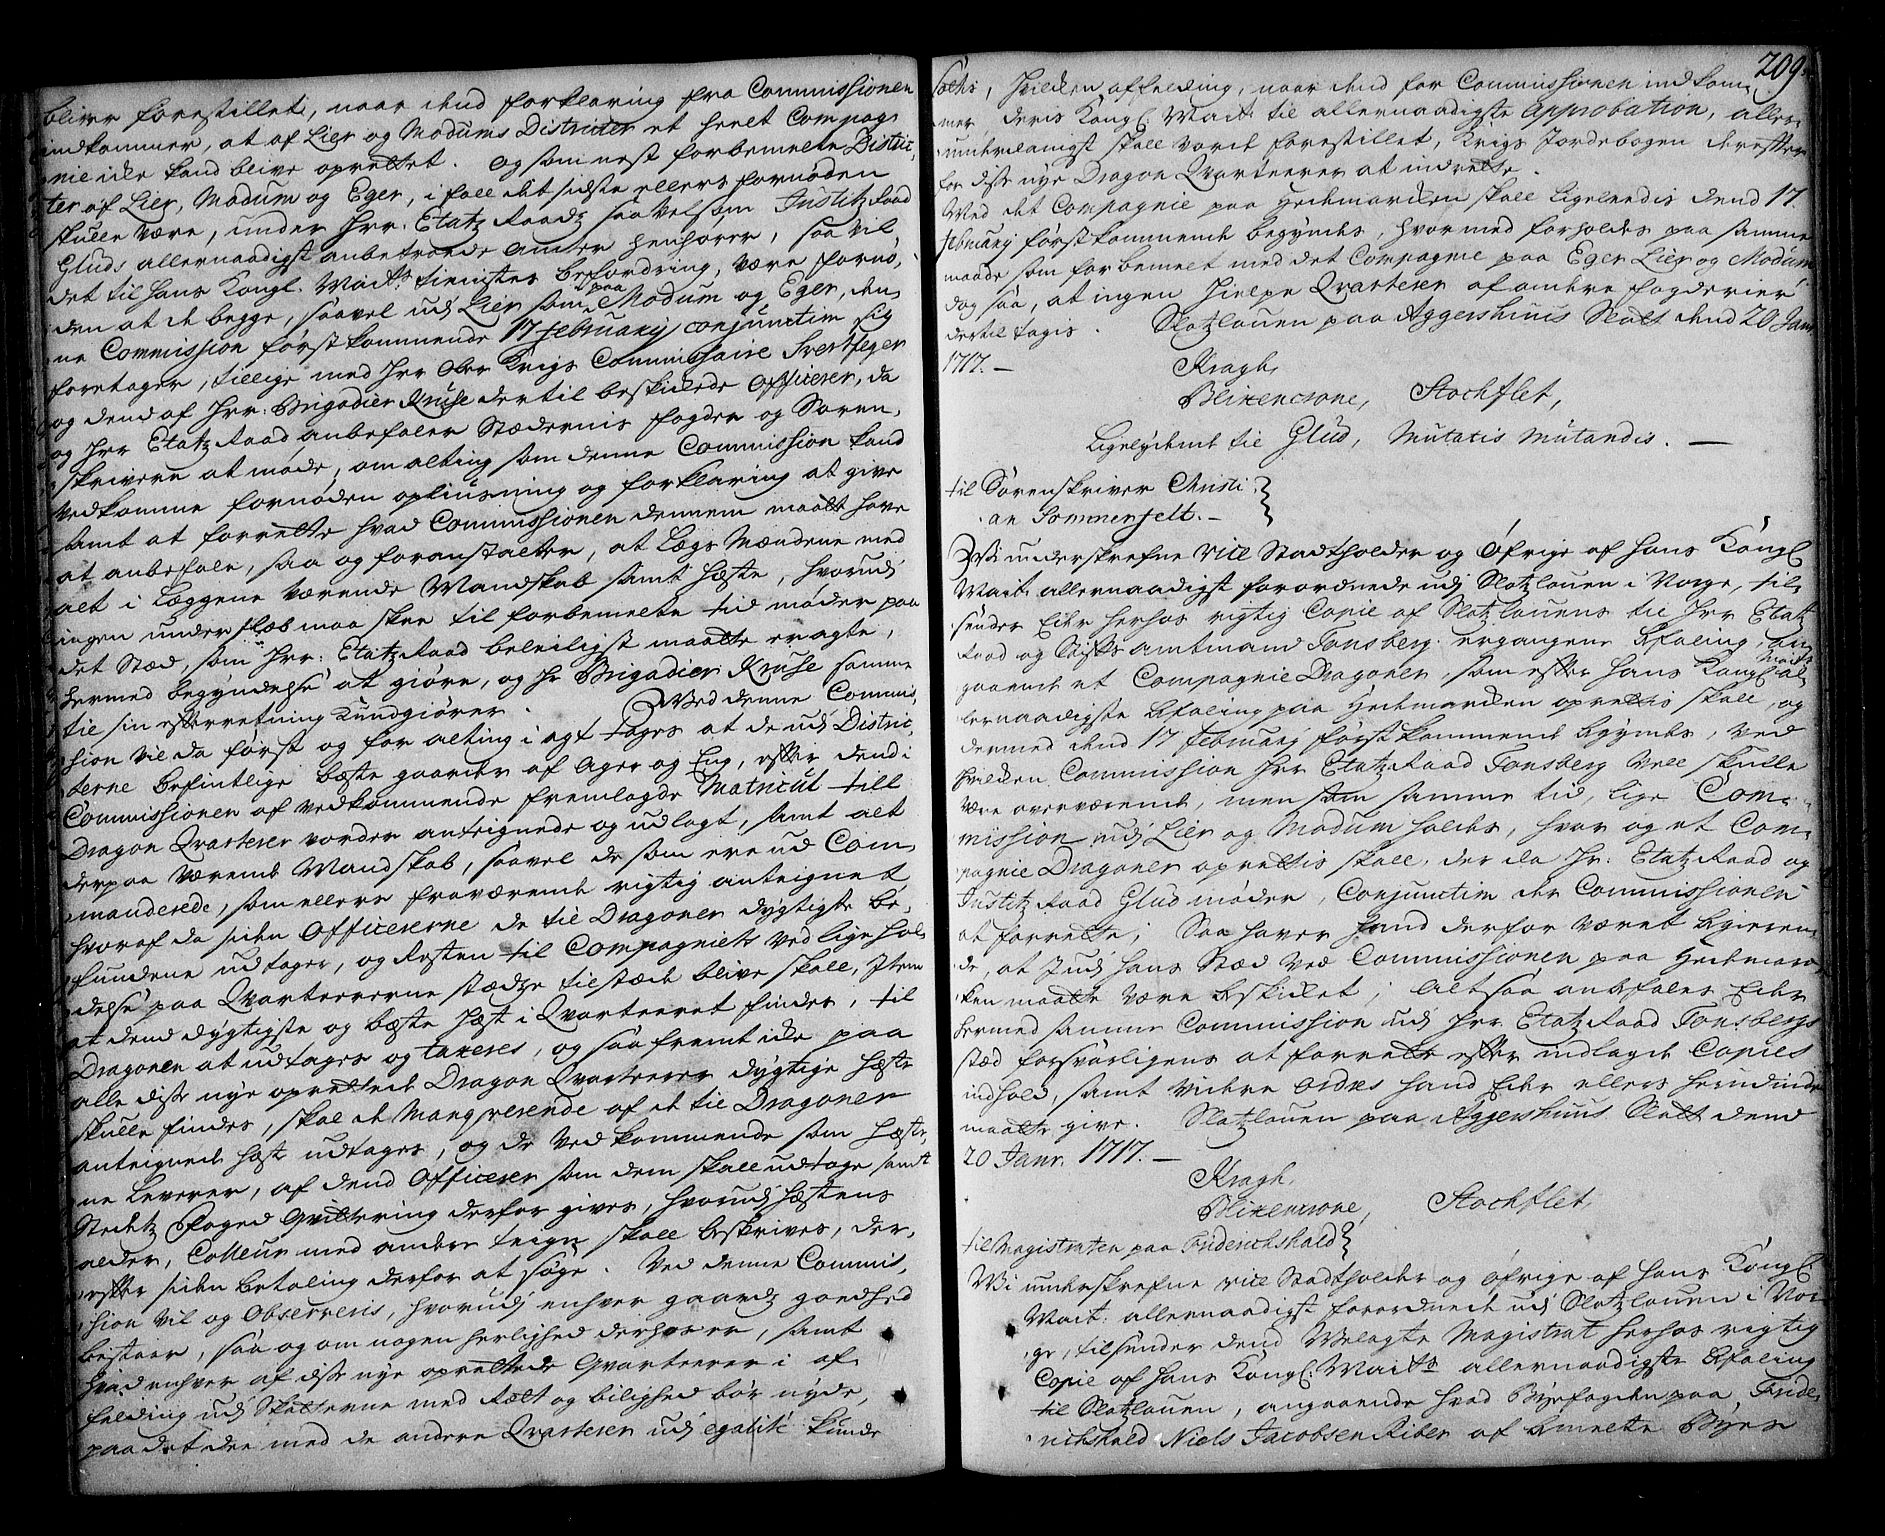 bliver forestillet, naar dend forklaring fra Commissionen
indkommer, at af Lier og Modums Districter et heelt Compag-
nie icke kand blive oprettet. og som nest forbemelte Distric-
ter af Lier, Modum og Eger, i fall det sidste ellers fornøden
skulle være, under Hrr. Etatz Raadz saavelsom Justitz Raad
Gluds allernaadigst anbetroede Ambter henhører, saa vil
det til Hans Kongl. Maits. tienistes befordring, være fornø-
den at de begge, saavel udj Lier som paa Modum og Eger, den-
ne Commission førstkommende 17 February conjunctim sig
foretager, tillige med Hrr Ober Krigs Commissaire Svertfeger
og dend af Hrr. Brigadier Kruse dertil beskickede Officerer, da
og Hrr Etatz Raad anbefaler Stædernis fogder og Soren-
skrivere at møde, om alting som denne Commission kand
vedkomme fornøden opliusning og forklaring at give
samt at forrette hvad Commissionen dennem maatte have
at anbefale, saa og foranstalter, at Lægs Mændene med
alt i Læggene værende Mandskab samt Hæste, hvorudj
ingen underslæb maa skee til forbemelte tid møder paa
det Stæd, som Hrr. Etatz Raad beleiligst maatte eragte,
hermed begyndelse at giøre, og Hr Brigadier Kruse samme
til sin efterretning kundgiører. Ved denne Commis-
sion vil da først og for alting i agt tages at de udj Distric-
terne befintlige beste gaarder af Ager og Eng, efter dend i
Commissionen af vedkommende fremlagde Matricul till
Dragon Qvarterer vorder antegnede og udlagt, samt alt
derpaa værende Mandskab, saavel de som ere ud Com-
manderede, som ellers fraværende rigtig antegnet
hvoraf da siden Officererne de til Dragoner dygtigste be-
fundene udtager, og Resten til Compagniets vedligehol-
delse paa Qvartererne stædze tilstæde blive skall, Item
at dend dygtigste og beste Hæst i Qvarteret findes, til
Dragonen at udtages og taxeres, og saafremt icke paa
alle disse nye oprettede Dragon Qvarterer dygtige Hæste
skulle findes, skal de Manqverende af de til Dragoner
antegnede Hæste udtages, og de vedkommende som Hæste-
ne leverer, af dend Officerer som dem skall udtage samt
Stedetz Foged Qvittering derfor gives, hvorudj Hæstens
alder, Colleur med andre teign skall beskrives, der-
efter siden betaling derfor at søge. Ved denne Commis-
sion vil og Observeris, hvorudj enhver gaardz goedhed
bestaar, saa og om nogen herlighed derhos er, samt
hvad enhver af disse nye oprettede Qvarteerer i af-
falding udj Skatterne med Rætt og billighed bør nyde,
paa det de med de andere Qvarterer udj egalité kunde
209.
sættes, hvilken affelding, naar dend for Commissionen indkom-
mer, Deris Kongl. Mait. til allernaadigste Approbation, aller-
underdanigst skall vorde forestillet, Krigs Jordebogen derefter
for disse nye Dragon Qvarterer at indrette.
Med det Compagnie paa Hedemarcken skall ligeledis dend 17.
February førstkommende begyndes, hvormed forholdes paa samme
maade som forbemelt med det Compagnie paa Eger Lier og Modum
dog saa, at ingen Hielpe Qvarterer af andre fogderier
dertil tagis. Slotzlouen paa Aggershuus Slott dend 20 Janr.
1717. —
Kragh,
Blixencrone, Stochflet,
Ligelydende til Glud, Mutatis Mutandis. —
til Sorenskriver Christi-
an Sommerfelt. —
Wi underskrefne Vice Stadtholder og Øfrige af Hans Kongl.
Mait. allernaadigst forordnede udj Slotzlouen i Norge, til-
sender Eder herhos rigtig Copie af Slotzlouens til Hrr Etatz
Raad og Stifts amtmand Tonsberg ergangene befaling, an-
gaaende et Compagnie Dragoner, som efter Hans Kongl. Maits al-
lernaadigste befaling paa Hedemarcken oprettis skall, og
dermed dend 17 February førstkommende begyndes, ved
hvilcken Commission Hrr Etatz Raad Tonsberg vell skulle
være overværende, men som samme tid, lige Com-
mission udj Lier og Modum holdes, hvor og et Com-
pagnie Dragoner oprettis skall, der da Hr. Etatz Raad og
Justitz Raad Glud møder, Conjunctim der Commissionen
at forrette; Saa haver hand derfor været begieren-
de, at I udj Hans Stæd ved Commissionen paa Hedemar-
ken maatte være beskicket; Altsaa anbefales Eder
hermed samme Commission udj Hrr Etatz Raad Tonsbergs
stæd forsvarligens at forrette efter indlagde Copies
indhold, samt videre ordres hand Eder ellers herudinde
maatte give. Slotzlouen paa Aggershuus Slott dend
20 Janr. 1717. —
Kragh,
Blixencrone, Stochflet,
til Magistraten paa Friderichshald
Wi underskrefne vice Stadtholder og øfrige af Hans Kongl.
Mait. allernaadigst forordnede udj Slotzlouen i Nor-
ge, tilsender dend Welagte Magistrat herhos rigtig
Copie af Hans Kongl. Maits allernaadigste befaling
til Slotzlouen, angaaende hvad Byefogden paa Fride-
richshald Niels Jacobsen Riber af bemelte Byes